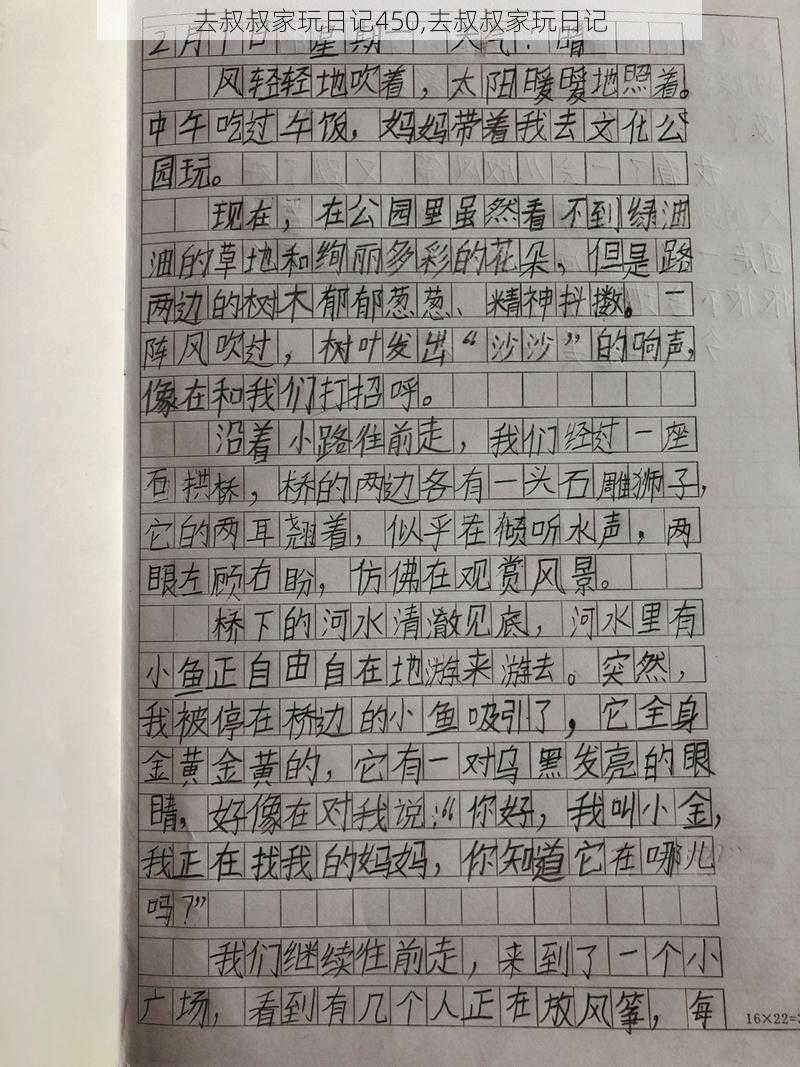 去叔叔家玩日记450,去叔叔家玩日记
2月1日 星期一 天气:晴
风轻轻地吹着，太阳暖暖地照着。
中午吃过午饭，妈妈带着我去文化公
园玩。
现在，在公园里虽然看不到绿油
油的草地和绚丽多彩的花朵，但是路
两边的树木郁郁葱葱、精神抖擞。一
阵风吹过，树叶发出“沙沙”的响声，
像在和我们打招呼。
沿着小路往前走，我们经过一座
石拱桥，桥的两边各有一头石雕狮子，
它的两耳翘着，似乎在倾听水声，两
眼左顾右盼，仿佛在观赏风景。
桥下的河水清澈见底，河水里有
小鱼正自由自在地游来游去。突然，
我被停在桥边的小鱼吸引了，它全身
金黄金黄的，它有一对乌黑发亮的眼
睛，好像在对我说：“你好，我叫小金，
我正在找我的妈妈，你知道它在哪儿
吗？”
我们继续往前走，来到了一个小
广场，看到有几个人正在放风筝，每
16×22=